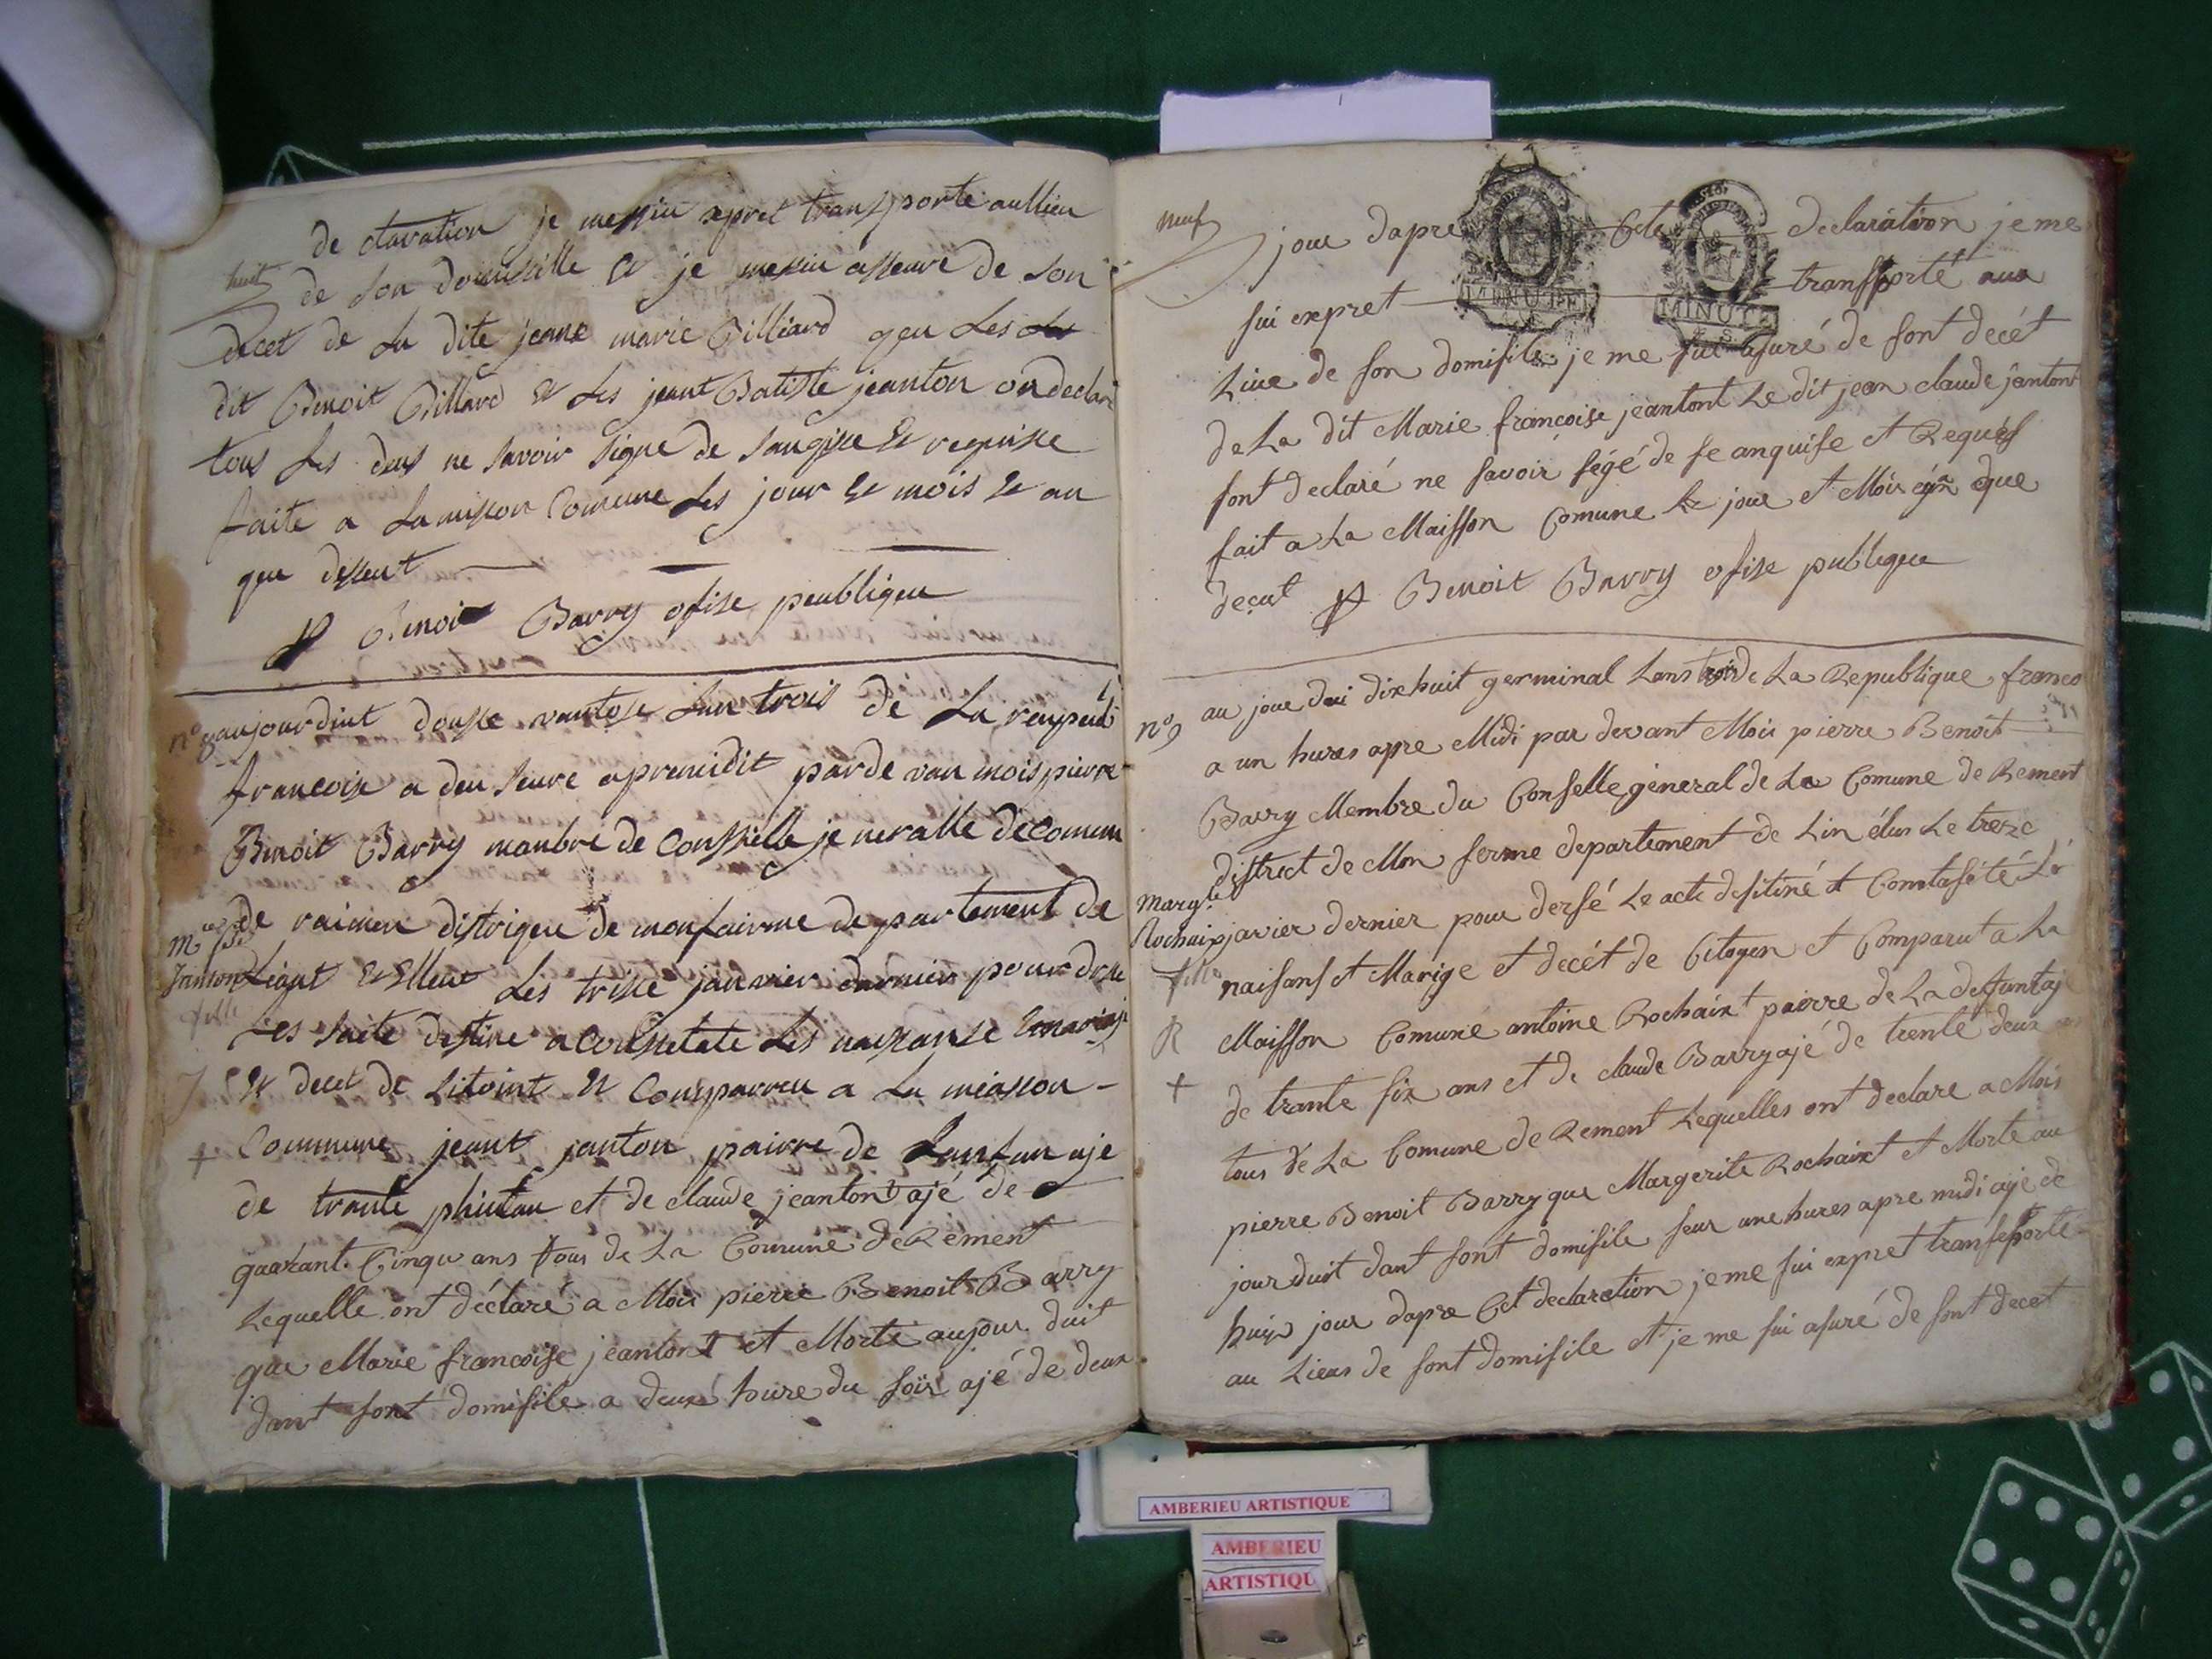 huit
de claration je messui expret transporte aullieu
de son domisille et je messui asseure de son
decet de La dite jeane marie Billiard que Les
dit Benoit Billard et Les jeant Batiste jeanton on declare
tous Les deus ne savoir signe de sangise et requise
faite a Lamison Comune Les jour et mois et an
que dessut
P Benoit Barry ofise peublique
n° 8 aujourdint douse vantose Lan trois de La reupubli
francoise a deu heure apremidit parde van mois pierre
Benoit Barry manbre de Conssielle je neralle de comun
M
Janton
fille
de raimen distrique de monfairme de partement de
Leant et elleut Les trisse janvier dernier pour drese
Les sacte destine a constate Les naisanse
et decet de sitoint et Comparreu a La miason
+ Commune jeant janton pairre de Lanfan aje
de trante et de claude jeanton ajé de
quarant Cinqu ans tous de La Comune de Rement
Lequelle ont déclaré a Moi pierre Benoit Barry
que Marie francoise jeantont et Morte aujour duit
dant font domifile a deux hure du foir ajé de deux
neuf
jour dapre Cete declaration je me
fui expret transporté aux
MINUTE
MINUTE
Liue de fon domifile je me fui afuré de font decét
de La dit Marie francoise jeantont Le dit jean claude jantont
font declaré ne favoir fégé de fe anquife et Requéf
fait a La Maiffon Comune Le jour et Mois que
deçut P Benoit Barry ofise publique
n° 9 au jour dui dixhuit germinal Lans trois de La Republique franco
a un hures apre Midi par devant Moi pierre Benoit
Barry Membre du Confelle general de La Comune de Rement
diftrect de Mon ferme departement de Lin élus Le treze
Margte
Rochaix
fille
R
+
javier dernier pour derfé Le acte deftiné et
naifanf et Marige et decét de Citoyen et Comparut a La
Maiffon Comune antoine Rochaixt pairre de La defuntaj
de trante fix ans et de claude Barry ajé de trente deux
tous de La Comune de Rement Lequelles ont declare a Mois
pierre Benoit Barry que Margerite Rochaixt et Morte au
jourduit dant font domifile feur une hures apre midi ajé de
huis jour dapre Cet declaration je me fui expret transporte
au Lieus de font domifile et je me fui afuré de font decet
AMBERIEU ARTISTIQUE
AMBERIEU
ARTISTIQU